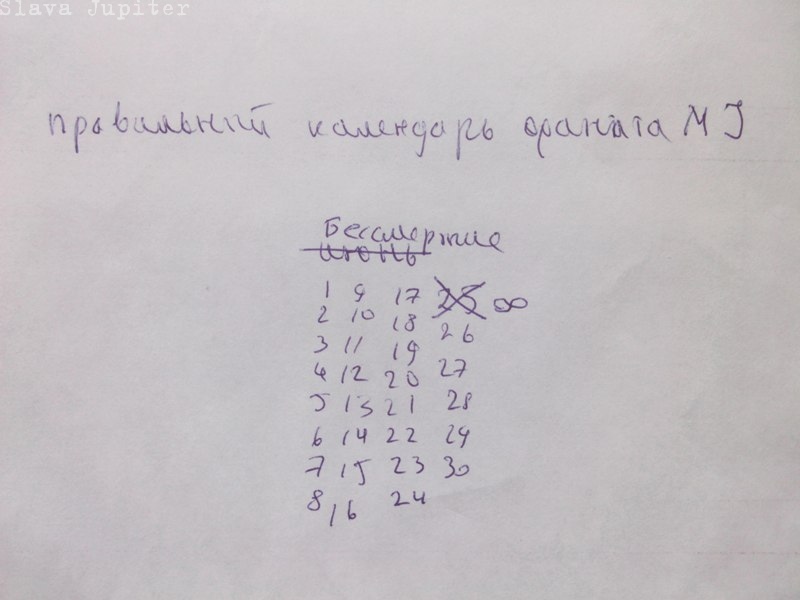 Slava Jupiter
правильний календарь фаната MJ
Бессмертие
июнь
1 9 17 25 ∞
2 10 18 26
3 11 19 27
4 12 20 28
5 13 21 29
6 14 22 30
7 15 23
8 16 24